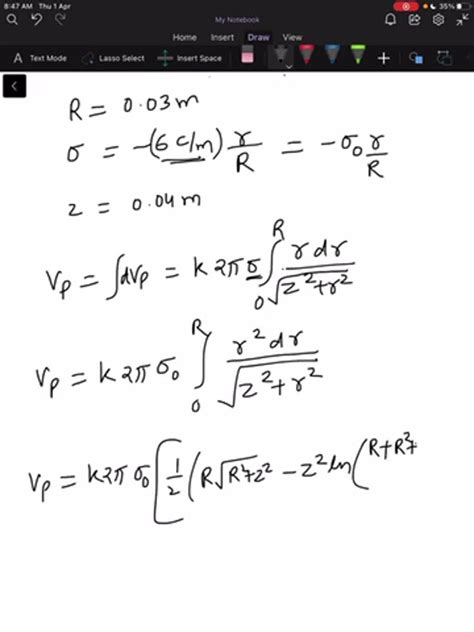 8:47 AM Thu 1 Apr
35%
My Notebook
Home Insert Draw View
Text Mode Lasso Select Insert Space
R = 0.03 m
σ = -(6 c/m) r/R = -σ₀ r/R
z = 0.04 m
Vp = ∫dVp = k 2π σ ∫₀ᴿ r dr / √(z² + r²)
Vp = k 2π σ₀ ∫₀ᴿ r² dr / √(z² + r²)
Vp = k 2π σ₀ [ 1/2 ( R√(R²+z²) - z² ln ( R + R² +